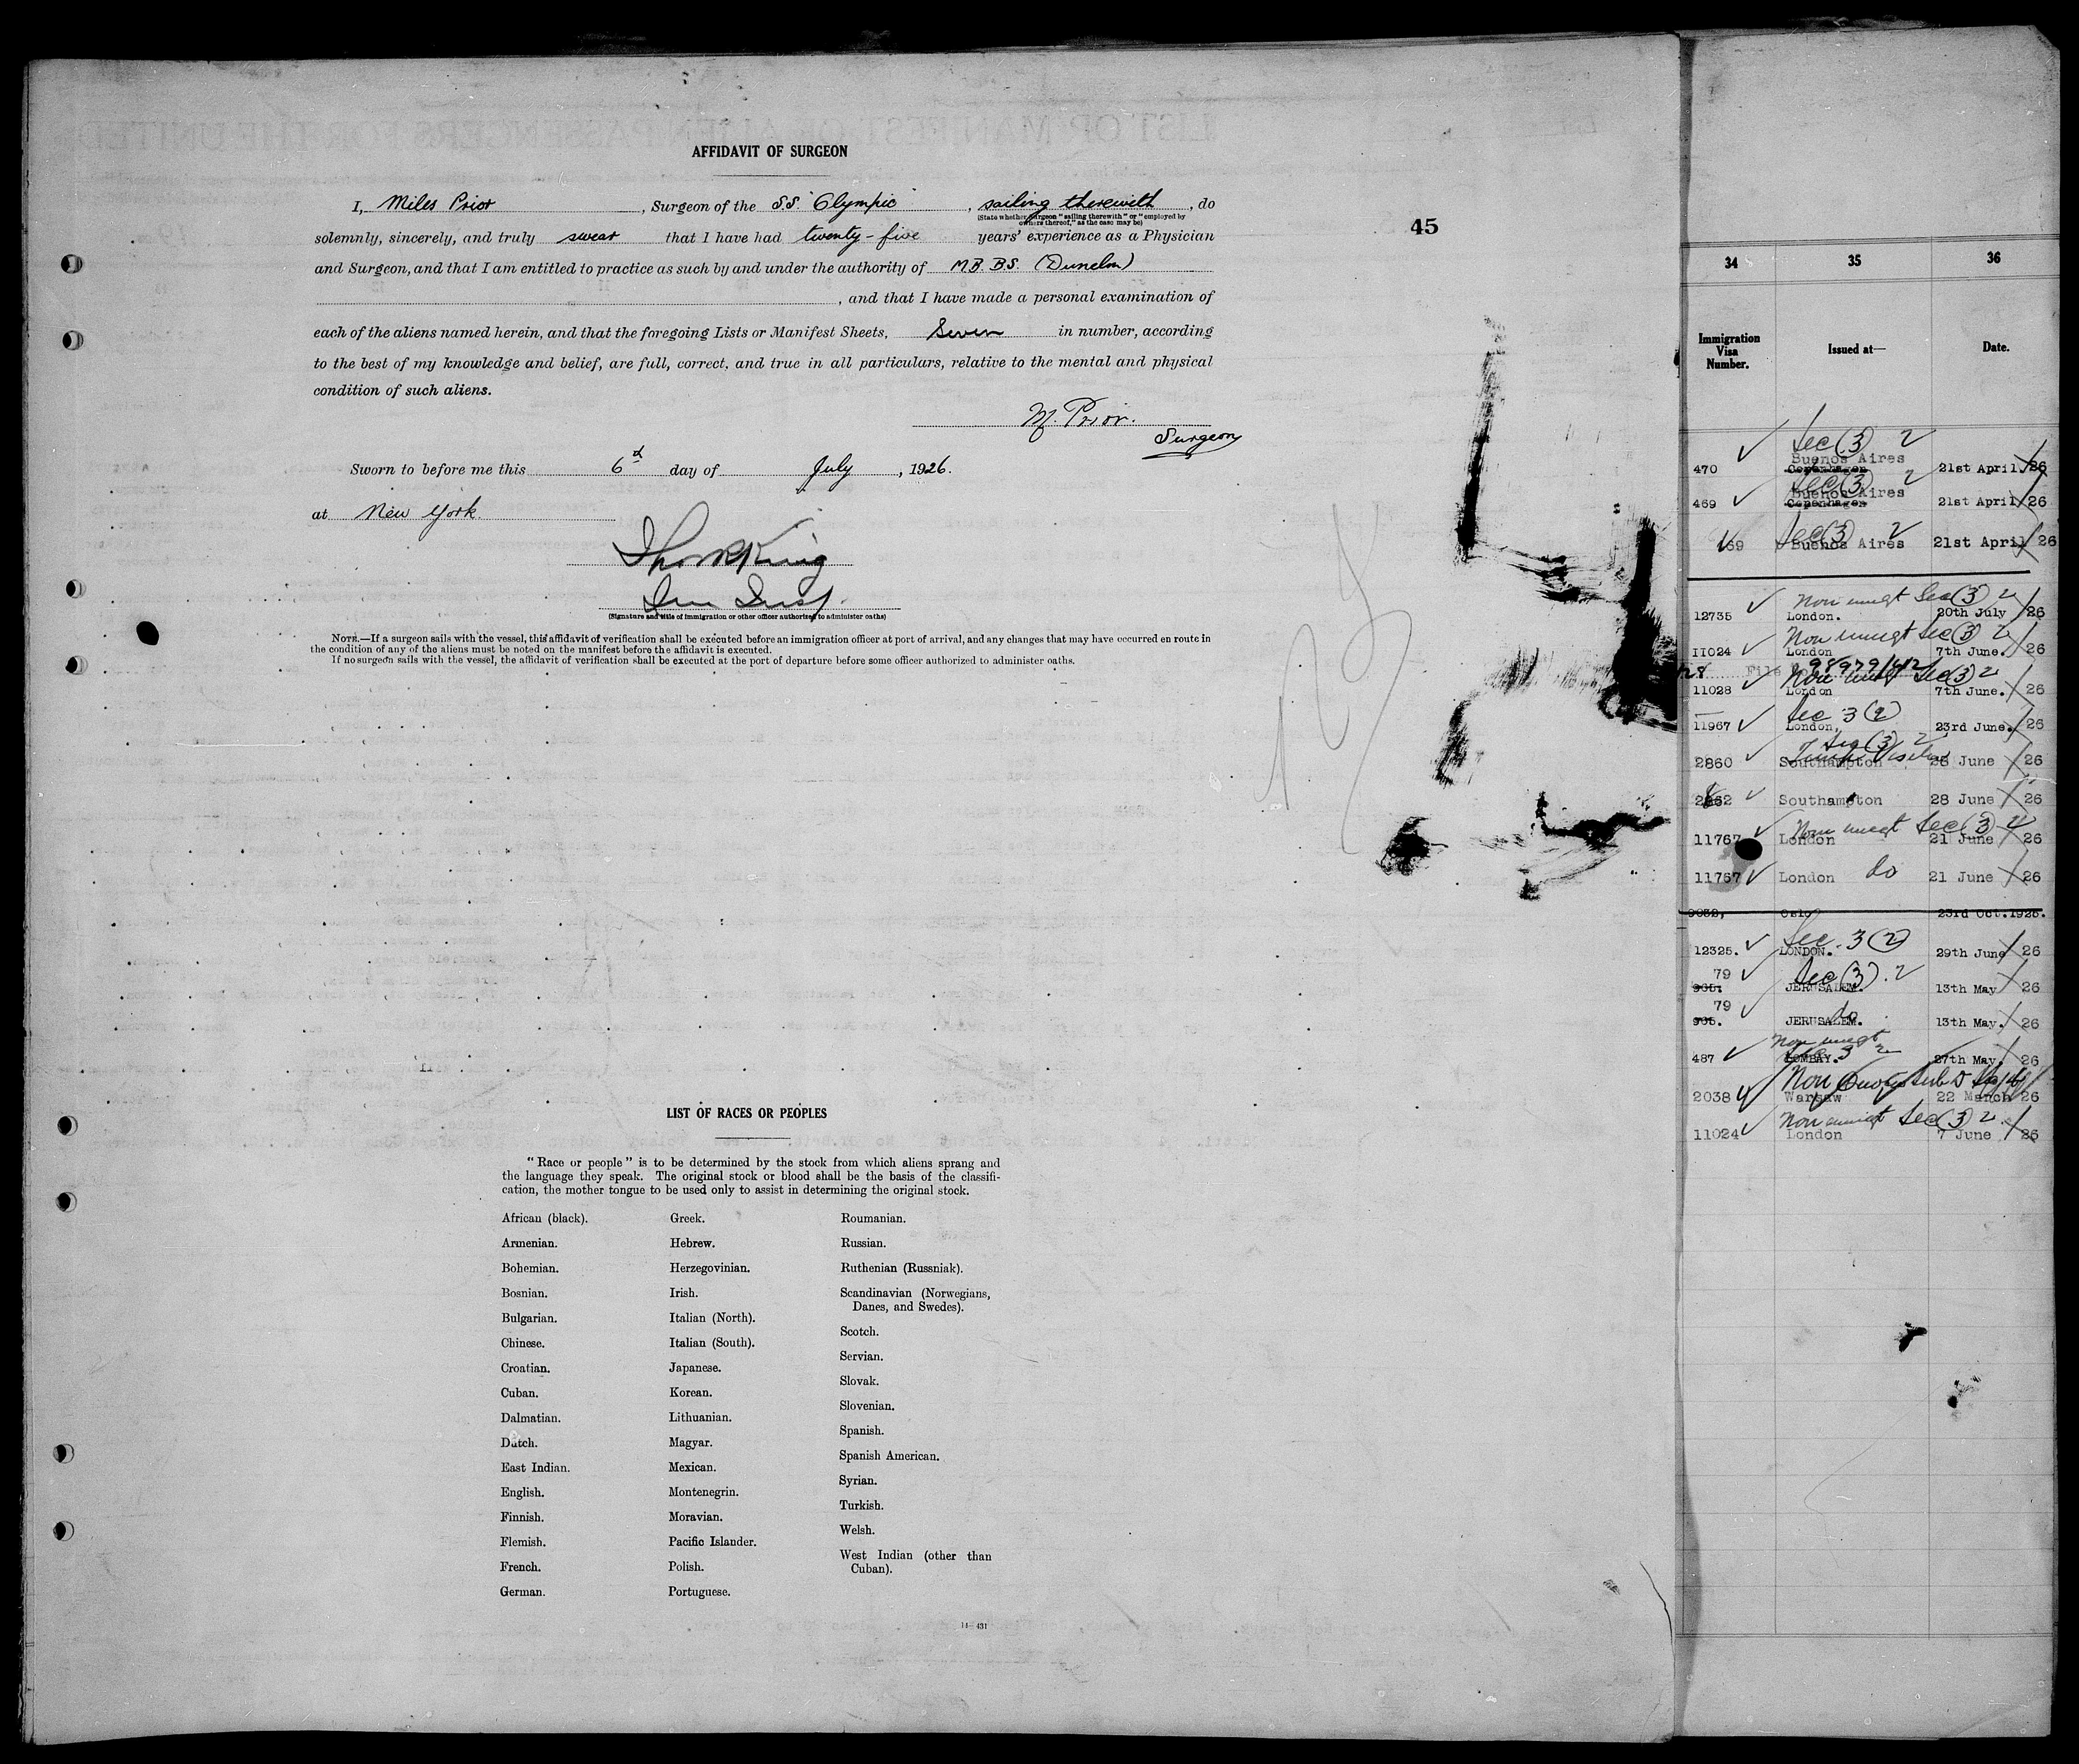 AFFIDAVIT OF SURGEON
I, Miles Prior, Surgeon of the S.S. Olympic, sailing therewith, do
(State whether surgeon "sailing therewith" or "employed by
owners thereof," as the case may be)
solemnly, sincerely, and truly swear that I have had twenty-five years' experience as a Physician
and Surgeon, and that I am entitled to practice as such by and under the authority of M.B. B.S. (Dunelm)
, and that I have made a personal examination of
each of the aliens named herein, and that the foregoing Lists or Manifest Sheets, Seven in number, according
to the best of my knowledge and belief, are full, correct, and true in all particulars, relative to the mental and physical
condition of such aliens.
M. Prior.
Surgeon
Sworn to before me this 6th day of July, 1926.
at New York.
(Signature and title of immigration or other officer authorized to administer oaths)
NOTE.—If a surgeon sails with the vessel, this affidavit of verification shall be executed before an immigration officer at port of arrival, and any changes that may have occurred en route in
the condition of any of the aliens must be noted on the manifest before the affidavit is executed.
If no surgeon sails with the vessel, the affidavit of verification shall be executed at the port of departure before some officer authorized to administer oaths.
45
LIST OF RACES OR PEOPLES
"Race or people" is to be determined by the stock from which aliens sprang and
the language they speak. The original stock or blood shall be the basis of the classifi-
cation, the mother tongue to be used only to assist in determining the original stock.
African (black).
Armenian.
Bohemian.
Bosnian.
Bulgarian.
Chinese.
Croatian.
Cuban.
Dalmatian.
Dutch.
East Indian.
English.
Finnish.
Flemish.
French.
German.
Greek.
Hebrew.
Herzegovinian.
Irish.
Italian (North).
Italian (South).
Japanese.
Korean.
Lithuanian.
Magyar.
Mexican.
Montenegrin.
Moravian.
Pacific Islander.
Polish.
Portuguese.
Roumanian.
Russian.
Ruthenian (Russniak).
Scandinavian (Norwegians,
Danes, and Swedes).
Scotch.
Servian.
Slovak.
Slovenian.
Spanish.
Spanish American.
Syrian.
Turkish.
Welsh.
West Indian (other than
Cuban).
14—431
34 35 36
Immigration
Visa
Number. Issued at— Date.
Sec (3) 2
Buenos Aires
470 Copenhagen 21st April. 26
Sec (3) 2
Buenos Aires
469 Copenhagen 21st April 26
Sec (3) 2
Buenos Aires 21st April 26
Non immgt Sec (3) 2
12735 London. 20th July 26
Non immgt Sec (3) 2
11024 London 7th June. 26
File 98979/42
Non immgt Sec (3) 2
11028 London 7th June. 26
Sec 3 (2)
11967 London. 23rd June. 26
Sec (3) 2
2860 Southampton 28 June 26
Southampton 28 June 26
Non immgt Sec (3) 2
11767 London 21 June 26
11767 London do 21 June 26
Oslo 23rd Oct. 1925.
Sec. 3 (2)
12325. LONDON. 29th June 26
Sec (3). 2
79
905. JERUSALEM. 13th May 26
79 do
905. JERUSALEM. 13th May. 26
Non immgt
487 BOMBAY. 3 2 27th May. 26
2038 Warsaw 22 March 26
Non immgt Sec (3) 2
11024 London 7 June 26